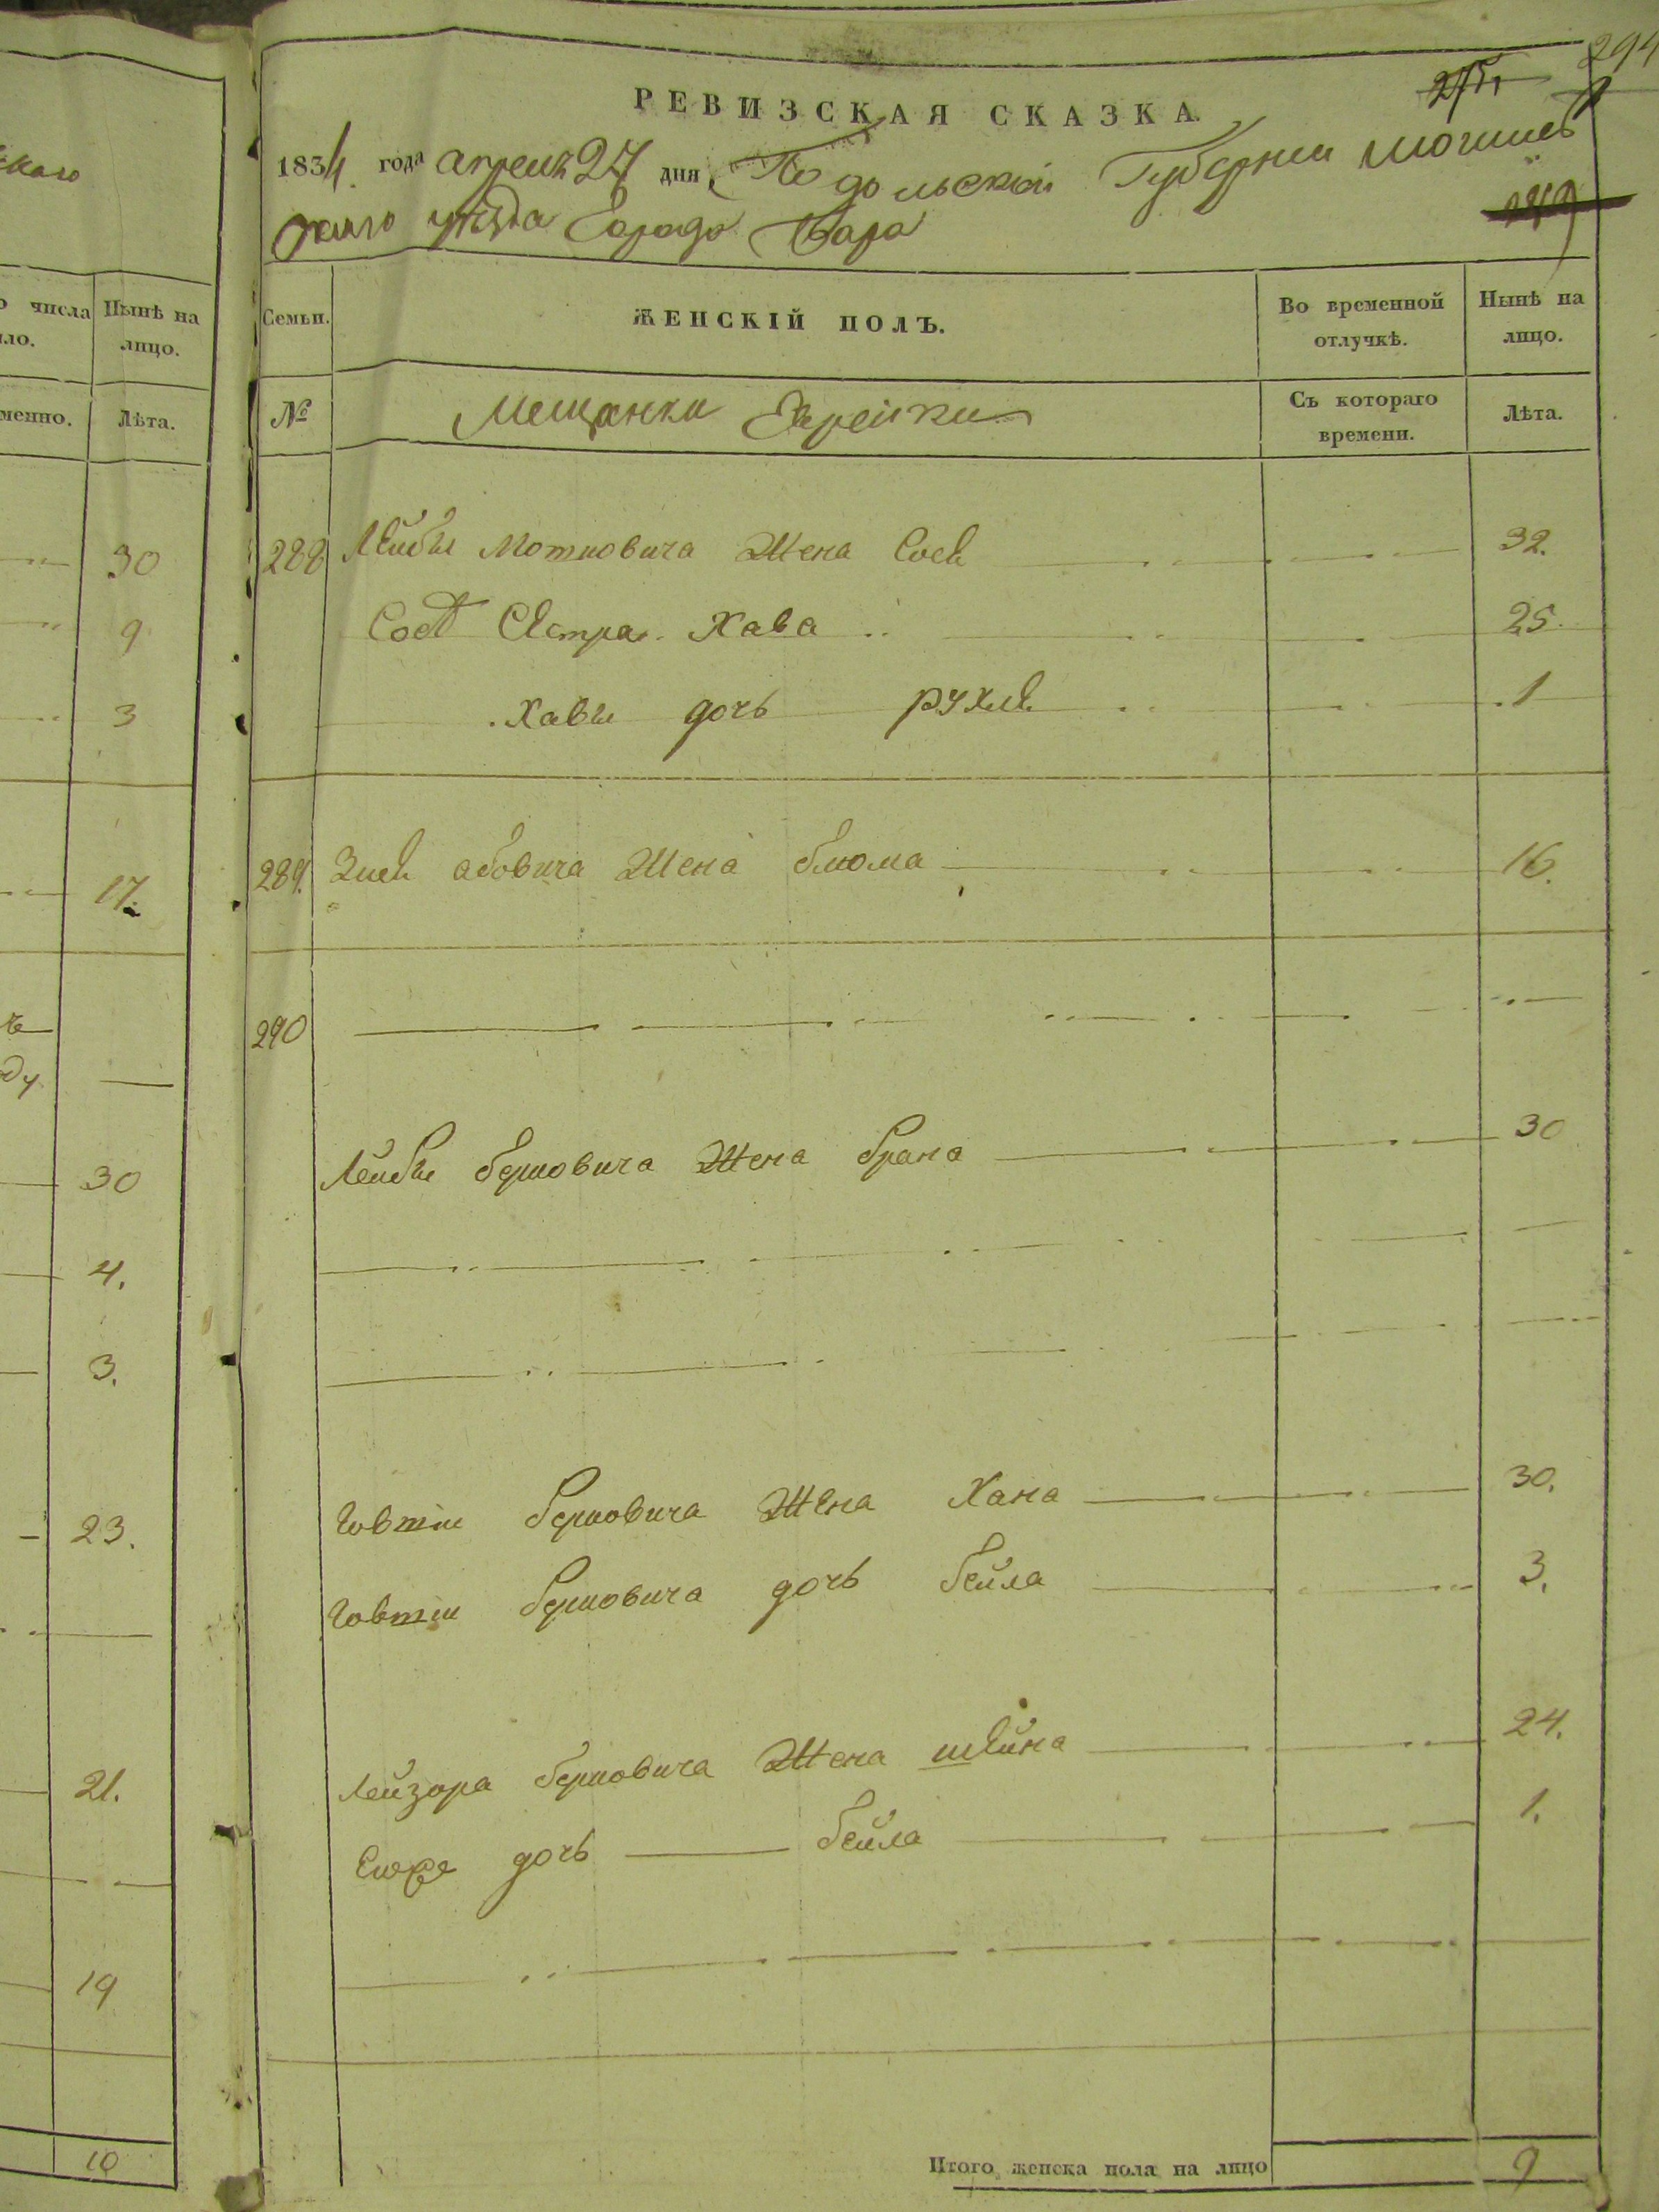 скаго
числа
Нынѣ на
ло.
лицо.
менно.
Лѣта.
30
9
3
17.
ду
30
4.
3.
23.
21.
19
10
294
РЕВИЗСКАЯ СКАЗКА.
1834 года апреля 27 дня Подольской Губернии Могилев
скаго уезда Города Бара
Семьи.
ЖЕНСКІЙ ПОЛЪ.
Во временной
отлучкѣ.
Нынѣ на
лицо.
№
Мещанки Еврейки
Съ котораго
времени.
Лѣта.
288 Лейбы Мотновича Жена Сося 32.
Сестра Хава 25.
Хавы дочь рухля 1
289. абовича Жена блюма 16.
290
Лейбы берковича Жена брана 30
берковича Жена Хана 30.
берковича дочь бейла 3.
Лейзора берковича Жена шейна 24.
дочь бейла 1.
Итого женска пола на лицо 9